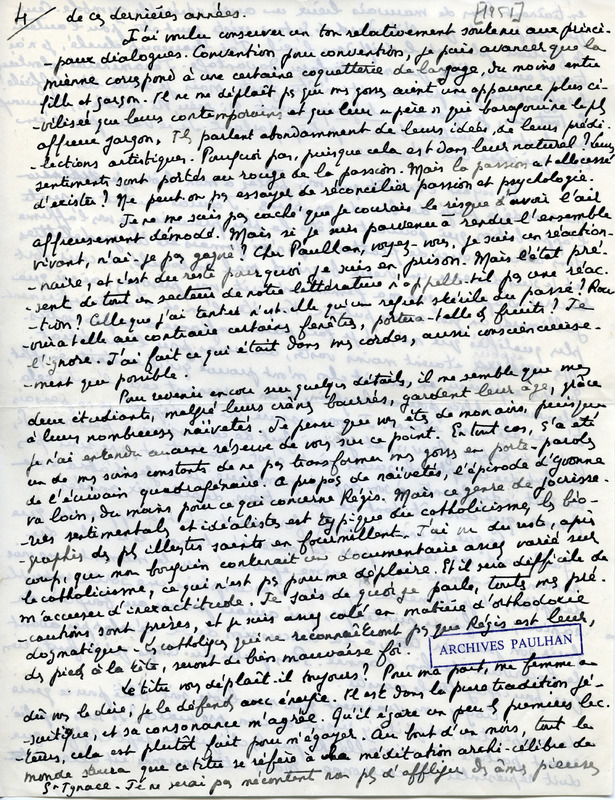 4/ de ces dernières années. [1951]
J'ai voulu conserver un ton relativement soutenu aux princi-
-paux dialogues. Convention pour convention, je puis avancer que la
mienne correspond à une certaine coquetterie de langage, du moins entre
fille et garçon. Il ne me déplaît pas que mes gosses aient une apparence plus ci-
-vilisée que leurs contemporains et que leur "père" qui baragouine le pls
affreux jargon. Ils parlent abondamment de leurs idées, de leurs prédi-
-lections artistiques. Pourquoi pas, puisque cela est dans leur naturel ? Leurs
sentiments sont portés au rouge de la passion. Mais la passion a-t-elle cessé
d'exister ? Ne peut-on pas essayer de réconcilier passion et psychologie.
Je ne me suis pas caché que je courais le risque d'avoir l'air
affreusement démodé. Mais si je suis parvenu à rendre l'ensemble
vivant, n'ai-je pas gagné ? Cher Paulhan, voyez-vous, je suis un réaction-
-naire, et c'est du reste pourquoi je suis en prison. Mais l'état pré-
-sent de tout un secteur de notre littérature n'appelle-t-il pas une réac-
-tion ? Celle que j'ai tentée n'est-elle qu'un reflet stérile du passé ? Rou-
vrira-t-elle au contraire certaines fenêtres, portera-t-elle des fruits ? Je
l'ignore. J'ai fait ce qui était dans mes cordes, aussi consciencieuse-
-ment que possible.
Pour revenir encore sur quelques détails, il me semble que mes
deux étudiants, malgré leurs crânes bourrés, gardent leur âge, grâce
à leurs nombreuses naïvetés. Je pense que vous êtes de mon avis, puisque
je n'ai entendu aucune réserve de vous sur ce point. En tout cas, ç'a été
un de mes soins constants de ne pas transformer mes gosses en porte-paroles
de l'écrivain quadragénaire. A propos de naïvetés, l'épisode d'Yvonne
va loin, du moins pour ce qui concerne Régis. Mais ce genre de jocrisse-
-ries sentimentales et idéalistes est typique du catholicisme, les bio-
-graphies des pls illustres saints en fourmillent. J'ai vu du reste, après
coup, que mon bouquin contenait un documentaire assez varié sur
le catholicisme, ce qui n'est pas pour me déplaire. Et il sera difficile de
m'accuser d'inexactitude. Je sais de quoi je parle, toutes mes pré-
-cautions sont prises, et je suis assez calé en matière d'orthodoxie
dogmatique. Les catholiques qui ne reconnaîtront pas que Régis est leur,
des pieds à la tête, seront de bien mauvaise foi.
ARCHIVES PAULHAN
Le titre vous déplaît-il toujours ? Pour ma part, ma femme a
dû vous le dire, je le défends avec énergie. Il est dans la pure tradition jé-
-suitique, et sa consonance m'agrée. Qu'il égare un peu les premiers lec-
-teurs, cela est plutôt fait pour m'égayer. Au bout d'un mois, tout le
monde saura que ce titre se réfère à une méditation archi-célèbre de
St Ignace. Je ne serai pas mécontent non pls d'affliger des âmes pieuses